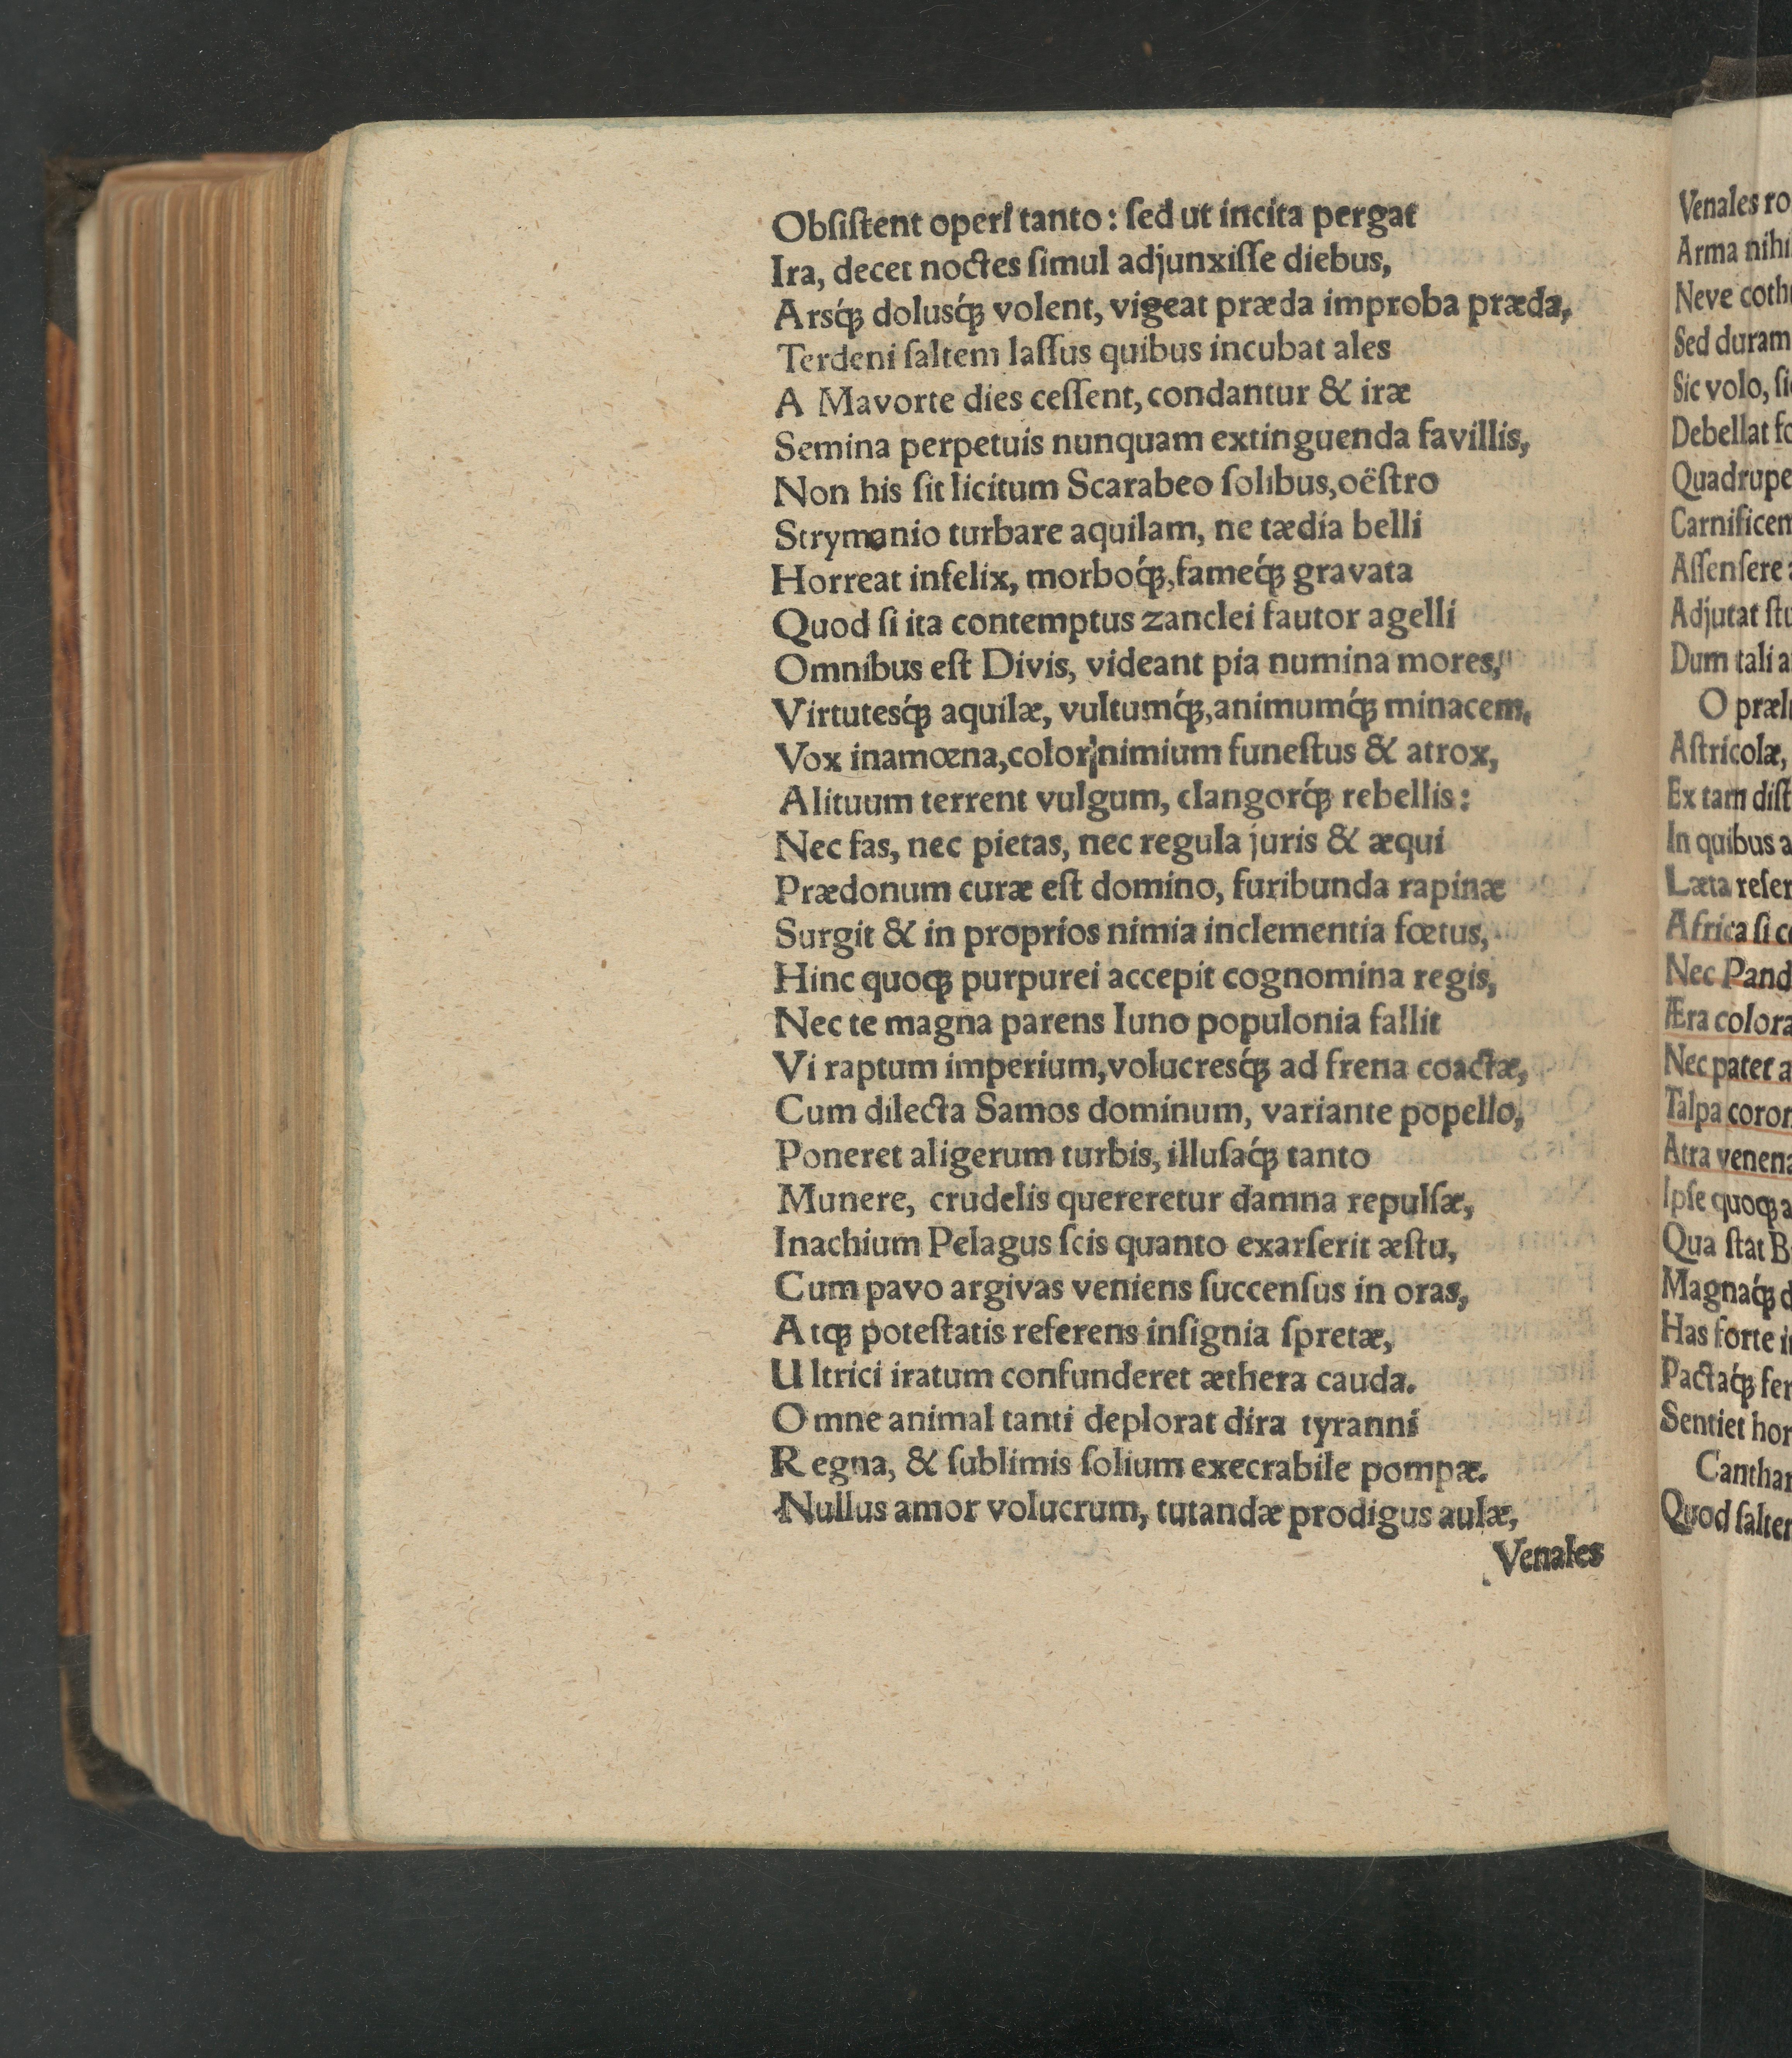 Obſiſtent operi tanto: ſed ut incita pergat
Ira, decet noctes ſimul adjunxiſſe diebus,
Arsq́ꝫ dolusq́ꝫ volent, vigeat præda improba præda,
Terdeni ſaltem laſſus quibus incubat ales
A Mavorte dies ceſſent, condantur & iræ
Semina perpetuis nunquam extinguenda favillis,
Non his ſit licitum Scarabeo ſolibus, oëſtro
Strymonio turbare aquilam, ne tædia belli
Horreat infelix, morboq́ꝫ, fameq́ꝫ gravata
Quod ſi ita contemptus zanclei fautor agelli
Omnibus eſt Divis, videant pia numina mores,
Virtutesq́ꝫ aquilæ, vultumq́ꝫ, animumq́ꝫ minacem,
Vox inamœna, color nimium funeſtus & atrox,
Alituum terrent vulgum, clangorq́ꝫ rebellis:
Nec fas, nec pietas, nec regula juris & æqui
Prædonum curæ eſt domino, furibunda rapinæ
Surgit & in proprios nimia inclementia fœtus,
Hinc quoqꝫ purpurei accepit cognomina regis,
Nec te magna parens Iuno populonia fallit
Vi raptum imperium, volucresq́ꝫ ad frena coactæ,
Cum dilecta Samos dominum, variante popello,
Poneret aligerum turbis, illuſaq́ꝫ tanto
Munere, crudelis quereretur damna repulſæ,
Inachium Pelagus ſcis quanto exarſerit æſtu,
Cum pavo argivas veniens ſuccenſus in oras,
Atqꝫ poteſtatis referens inſignia ſpretæ,
Ultrici iratum confunderet æthera cauda.
Omne animal tanti deplorat dira tyranni
Regna, & ſublimis ſolium execrabile pompæ.
Nullus amor volucrum, tutandæ prodigus aulæ,
Venales
Venales
Arma
Neve
Sed duram
Sic volo,
Debellat
Aſſenſere
Adjutat
Dum tali
O
Aſtricolæ,
Ex tam
In quibus
Læta
Africa ſi
Nec
Æra
Nec patet
Talpa
Atra
Ipſe quoqꝫ
Qua ſtat
Magnaq́ꝫ
Has forte
Pactaq́ꝫ
Sentiet
Quod